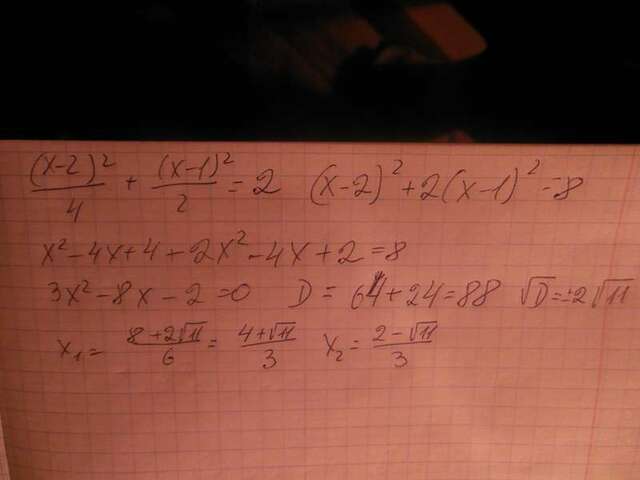 (x-2)²/4 + (x-1)²/2 = 2   (x-2)² + 2(x-1)² = 8
x² - 4x + 4 + 2x² - 4x + 2 = 8
3x² - 8x - 2 = 0   D = 64 + 24 = 88   √D = ±2√11
x₁ = (8 + 2√11)/6 = (4 + √11)/3   x₂ = (2 - √11)/3